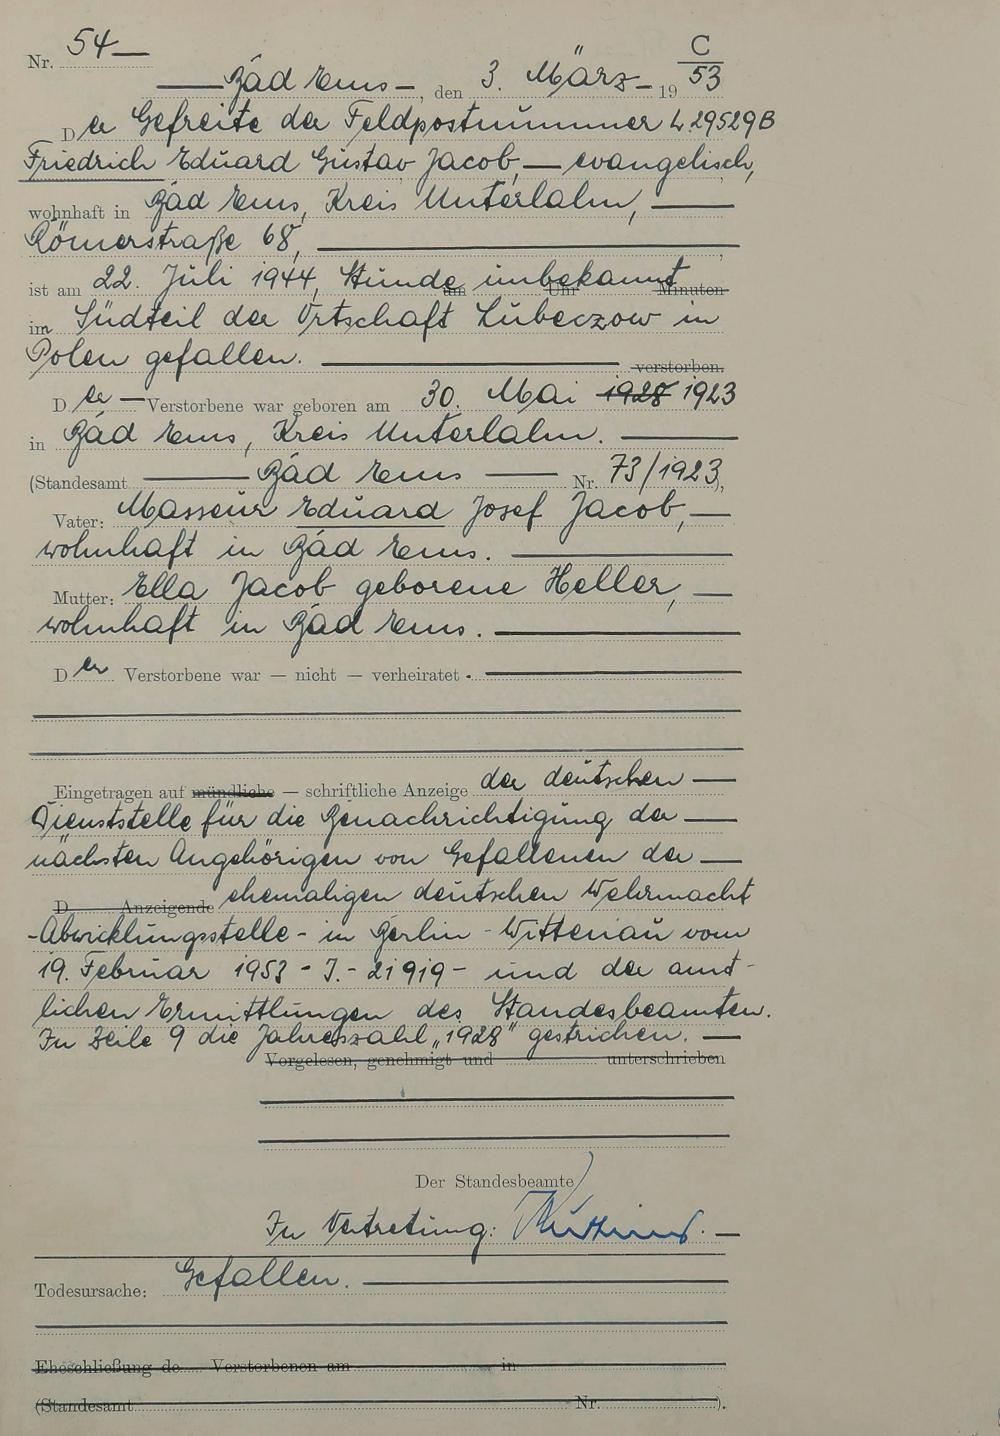 C
Nr. 54
Bad Ems, den 3. März 1953
Der Gefreite der Feldpostnummer L 29529B
Friedrich Eduard Gustav Jacob, evangelisch,
wohnhaft in Bad Ems, Kreis Unterlahn,
Römerstraße 68,
ist am 22. Juli 1944, Stunde um unbekannt Uhr Minuten
im Südteil der Ortschaft Lubeczow in
Polen gefallen. verstorben.
Der Verstorbene war geboren am 30. Mai 1928 1923
in Bad Ems, Kreis Unterlahn.
(Standesamt Bad Ems Nr. 73/1923),
Vater: Masseur Eduard Josef Jacob,
wohnhaft in Bad Ems.
Mutter: Ella Jacob geborene Heller,
wohnhaft in Bad Ems.
Der Verstorbene war — nicht — verheiratet.
Eingetragen auf mündliche — schriftliche Anzeige der deutschen
Dienststelle für die Benachrichtigung der
nächsten Angehörigen von Gefallenen der
D Anzeigende ehemaligen deutschen Wehrmacht
-Abwicklungsstelle- in Berlin-Wittenau vom
19. Februar 1953 - J. - 21919 - und der amt-
lichen Ermittlungen des Standesbeamten.
In Zeile 9 die Jahreszahl „1928" gestrichen.
Vorgelesen, genehmigt und unterschrieben
Der Standesbeamte
In Vertretung:
Todesursache: Gefallen.
Eheschließung de Verstorbenen am in
(Standesamt Nr. ).